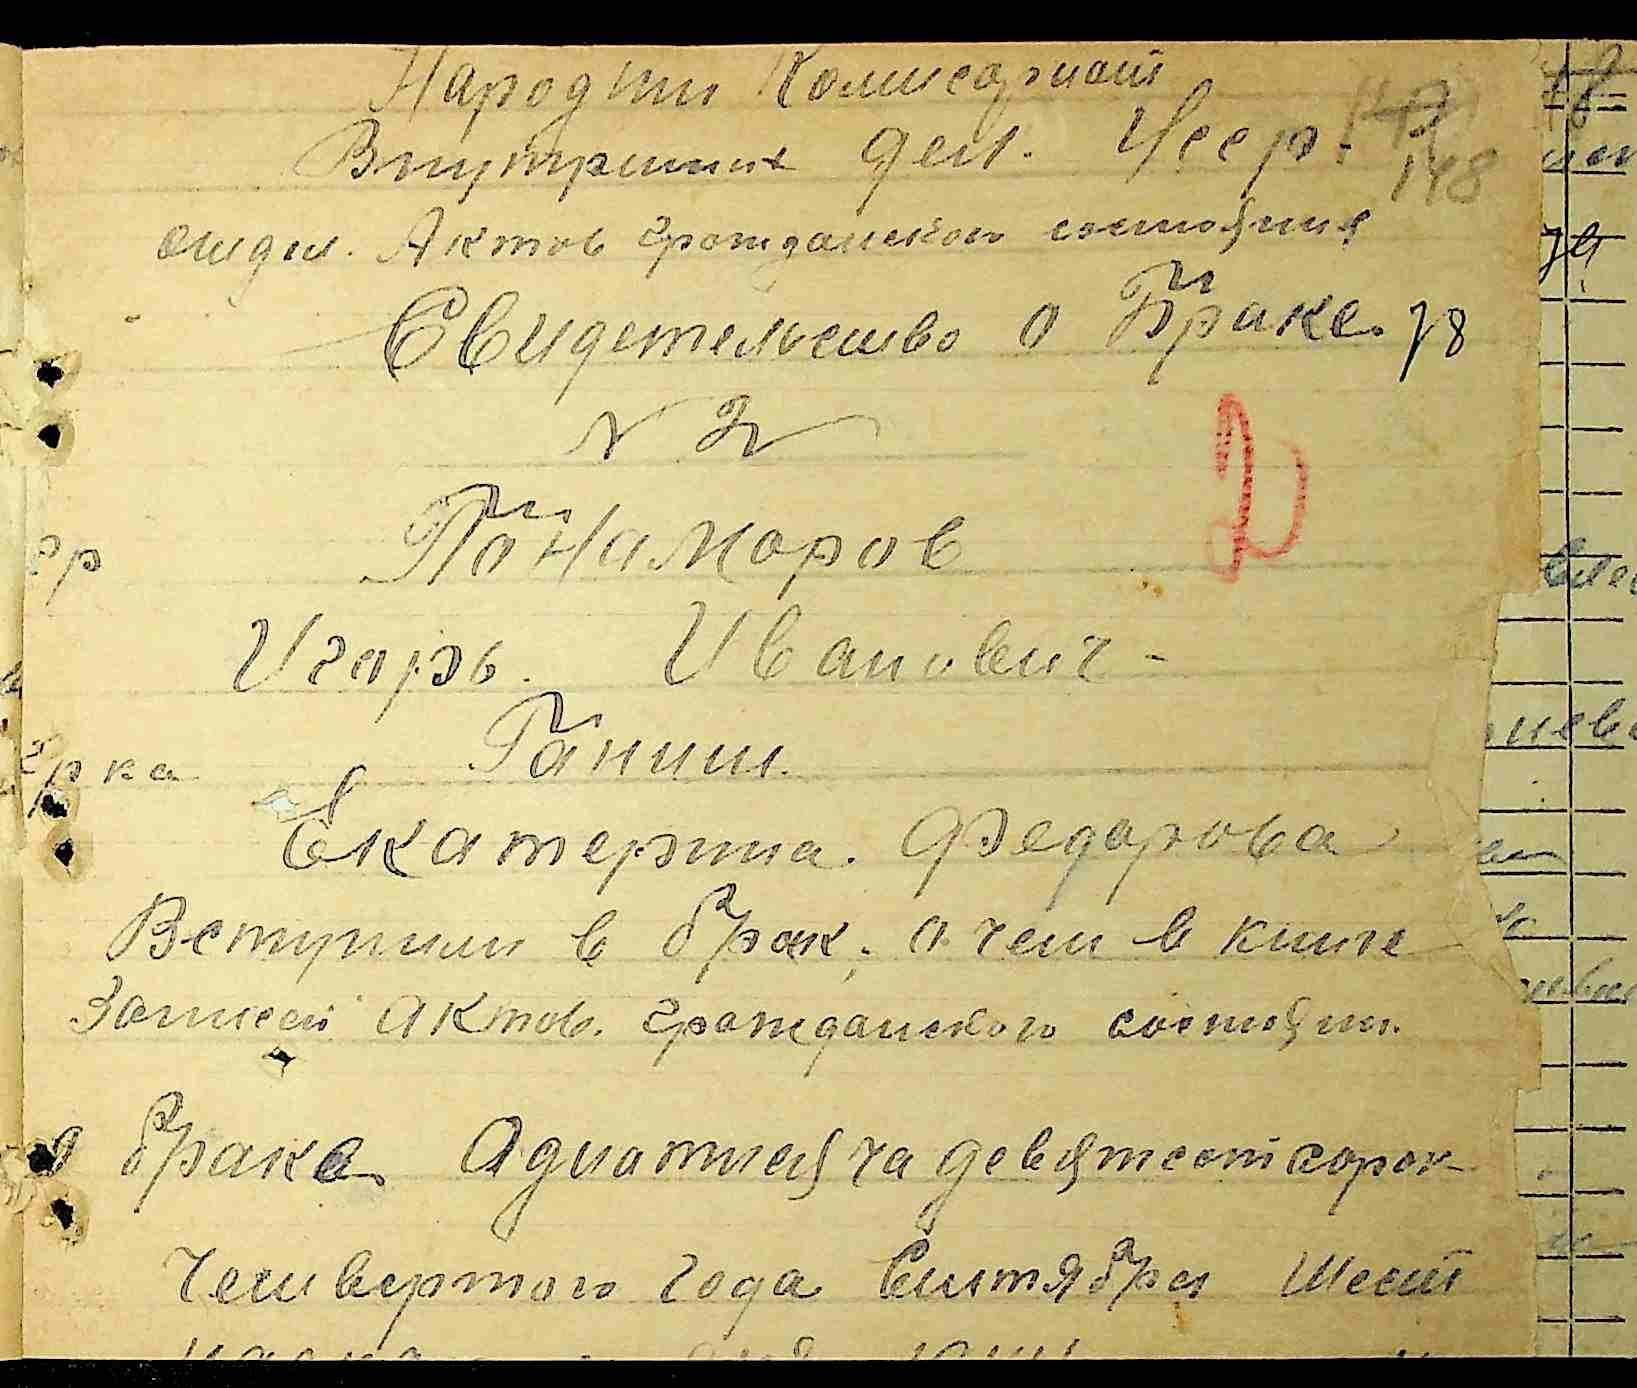 Народни Комисариат
Внутриних дел. Усср.
148
отдел. Актов гражданского состояния
Свидетельство о Браке. 78
N 2
2
Понаморов
Игарь. Иванович-
Ганин.
Екатерина. Федарова
Вступили в брак, о чем в книге
Записей актов. гражданского состояни.
О браке. Аднатисяча девятсот сорок
Четвертого года Синтября Шест